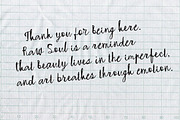 Thank you for being here.
Raw Soul is a reminder
that beauty lives in the imperfect,
and art breathes through emotion.